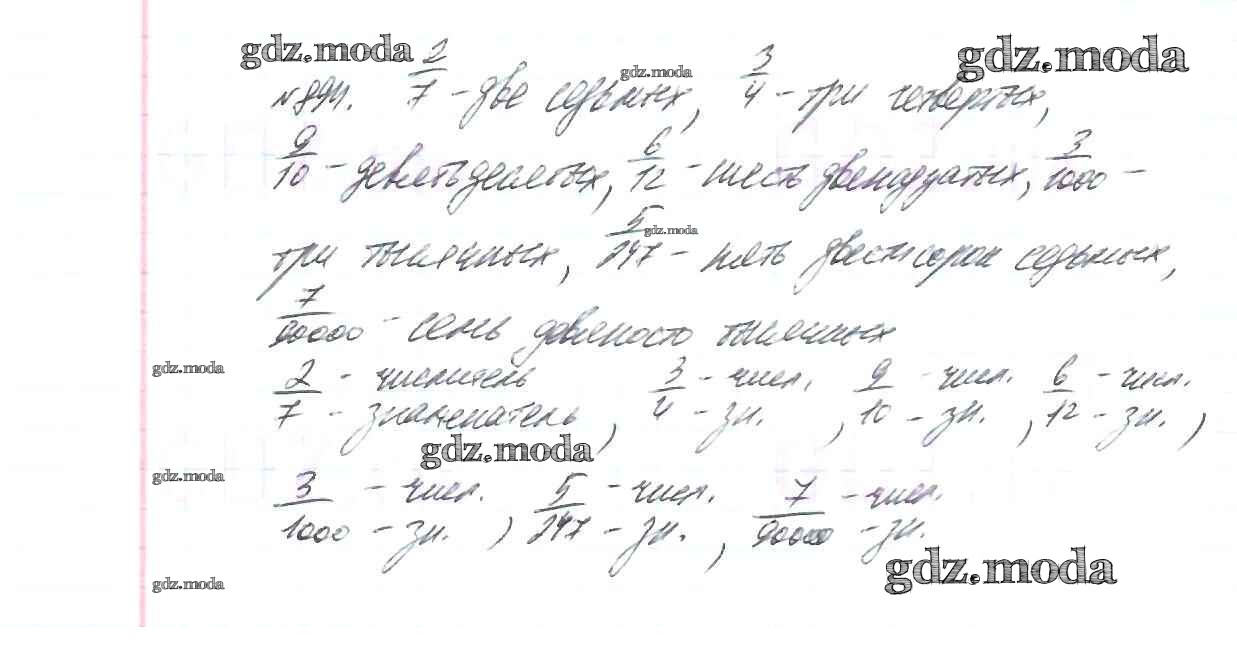 gdz.moda gdz.moda
№894. 2/7 - две седьмых, gdz.moda 3/4 - три четвертых,
9/10 - девять десятых, 6/12 - шесть двенадцатых, 3/1000 -
три тысячных, 5/247 gdz.moda - пять двести сорок седьмых,
7/90000 - семь девяносто тысячных
gdz.moda 2/7 - числитель - знаменатель, 3/4 - числ. - зн., 9/10 - числ. - зн., 6/12 - числ. - зн.,
gdz.moda
gdz.moda 3/1000 - числ. - зн., 5/247 - числ. - зн., 7/90000 - числ. - зн.
gdz.moda gdz.moda